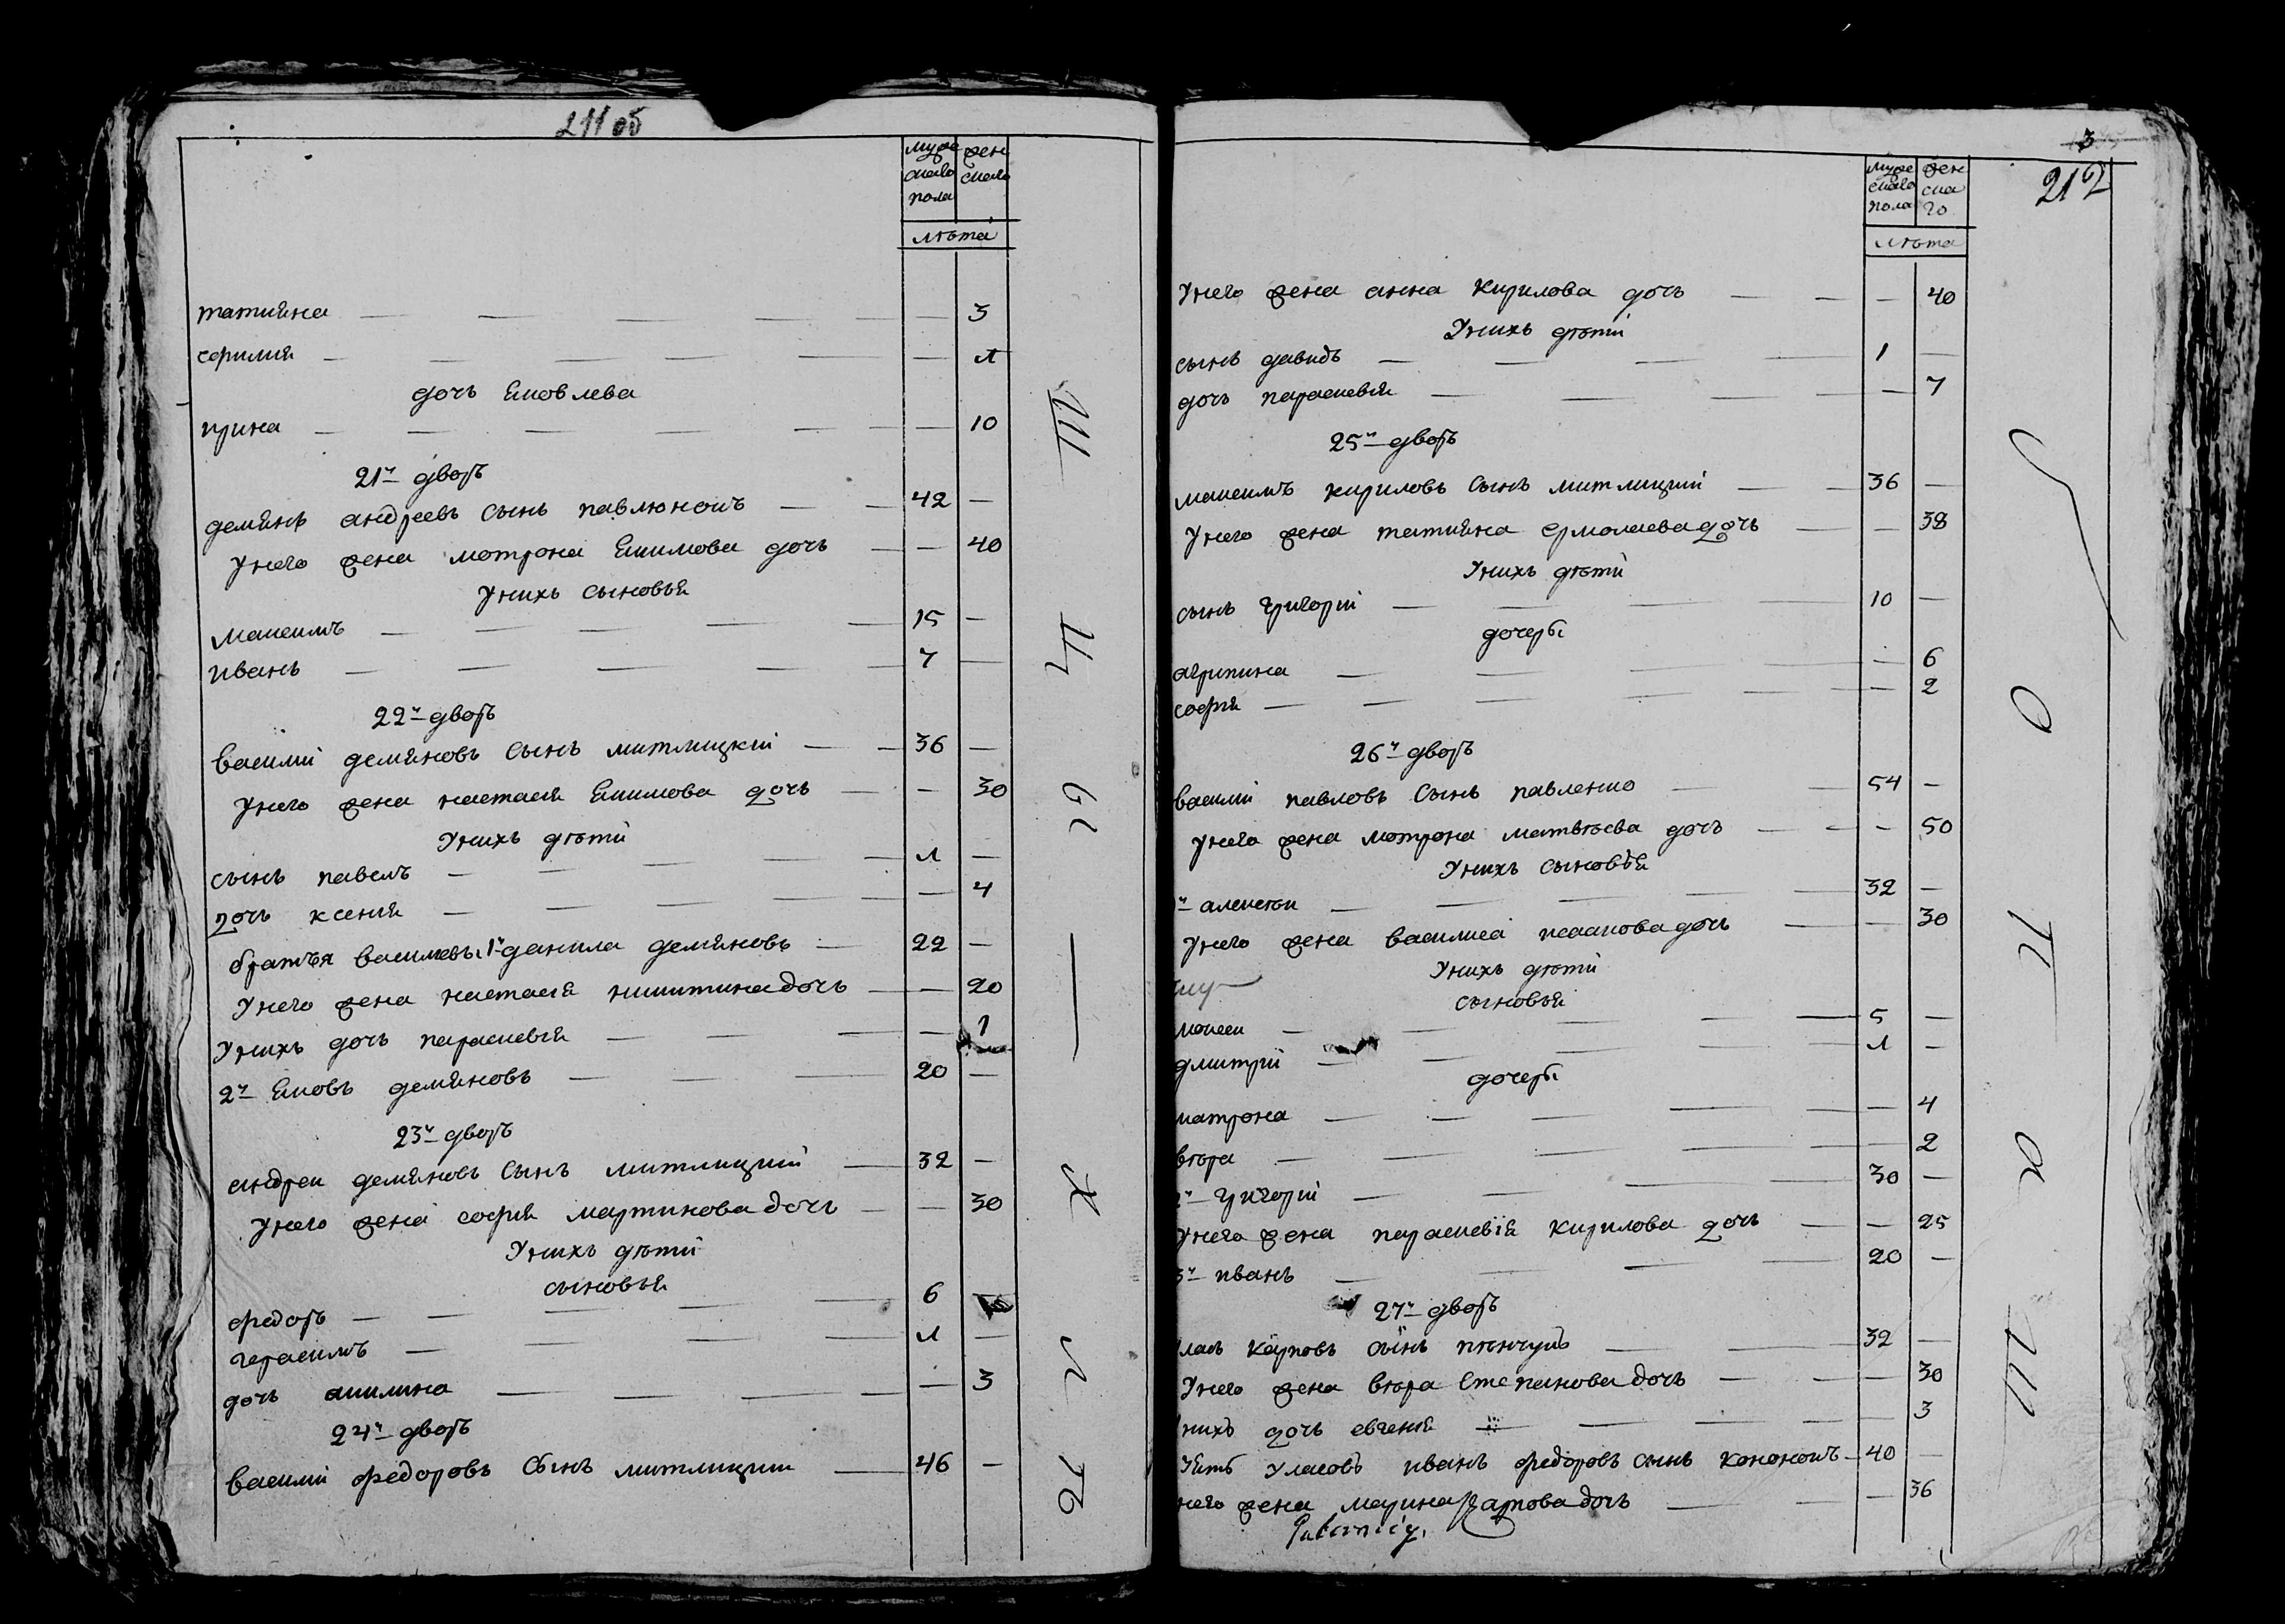 211 об
мужескаго пола
женскаго
лѣта
татияна — 3
еѳимия — ½
дочь Яковлева
ирина — 10
21й дворъ
демянъ андреевъ сынъ павлюкоичъ 42 —
Унего жена мотрона Якимова дочь — 40
Унихъ сыновья
максимъ 15 —
иванъ 7 —
22й дворъ
василий демяновъ сынъ митлицкий 36 —
Унего жена настасия Якимова дочь — 30
Унихъ дѣти
сынъ павелъ ½ —
дочь ксения — 4
братья василиевы 1й данила демяновъ 22 —
Унего жена настасия никитина дочь — 20
Унихъ дочь параскевия — 1
2й Яковъ демяновъ 20 —
23й дворъ
андреи демяновъ сынъ митлицкий 32 —
Унего жена софия мартинова дочь — 30
Унихъ дѣти
сыновья
федотъ 6 —
герасимъ ½ —
дочь акилина — 3
24й дворъ
василий федоровъ сынъ митлицкии 46 —
3
212
мужескаго пола
женскаго
лѣта
Унего жена анна кирилова дочь — 40
Унихъ дѣти
сынъ давидъ 1 —
дочь параскевия — 7
25й дворъ
максимъ кириловъ сынъ митлицкий 36 —
Унего жена татияна ермолаева дочь — 38
Унихъ дѣти
сынъ григорий 10 —
дочеры
агрипина — 6
софия — 2
26й дворъ
василий павловъ сынъ павленко 54 —
Унего жена мотрона матвѣева дочь — 50
Унихъ сыновья
й алексѣи 32 —
Унего жена василиса исаакова дочь — 30
Унихъ дѣти
сыновья
моисеи 5 —
дмитрий ½ —
дочеры
матрона — 4
вѣра — 2
2й григорий 30 —
Унего жена параскевия кирилова дочь — 25
3й иванъ 20 —
27й дворъ
ласъ карповъ сынъ 32 —
Унего жена вѣра степанова дочь — 30
нихъ дочь евгения — 3
зять уласовъ иванъ федоровъ сынъ 40 —
него жена марина карпова дочь — 36